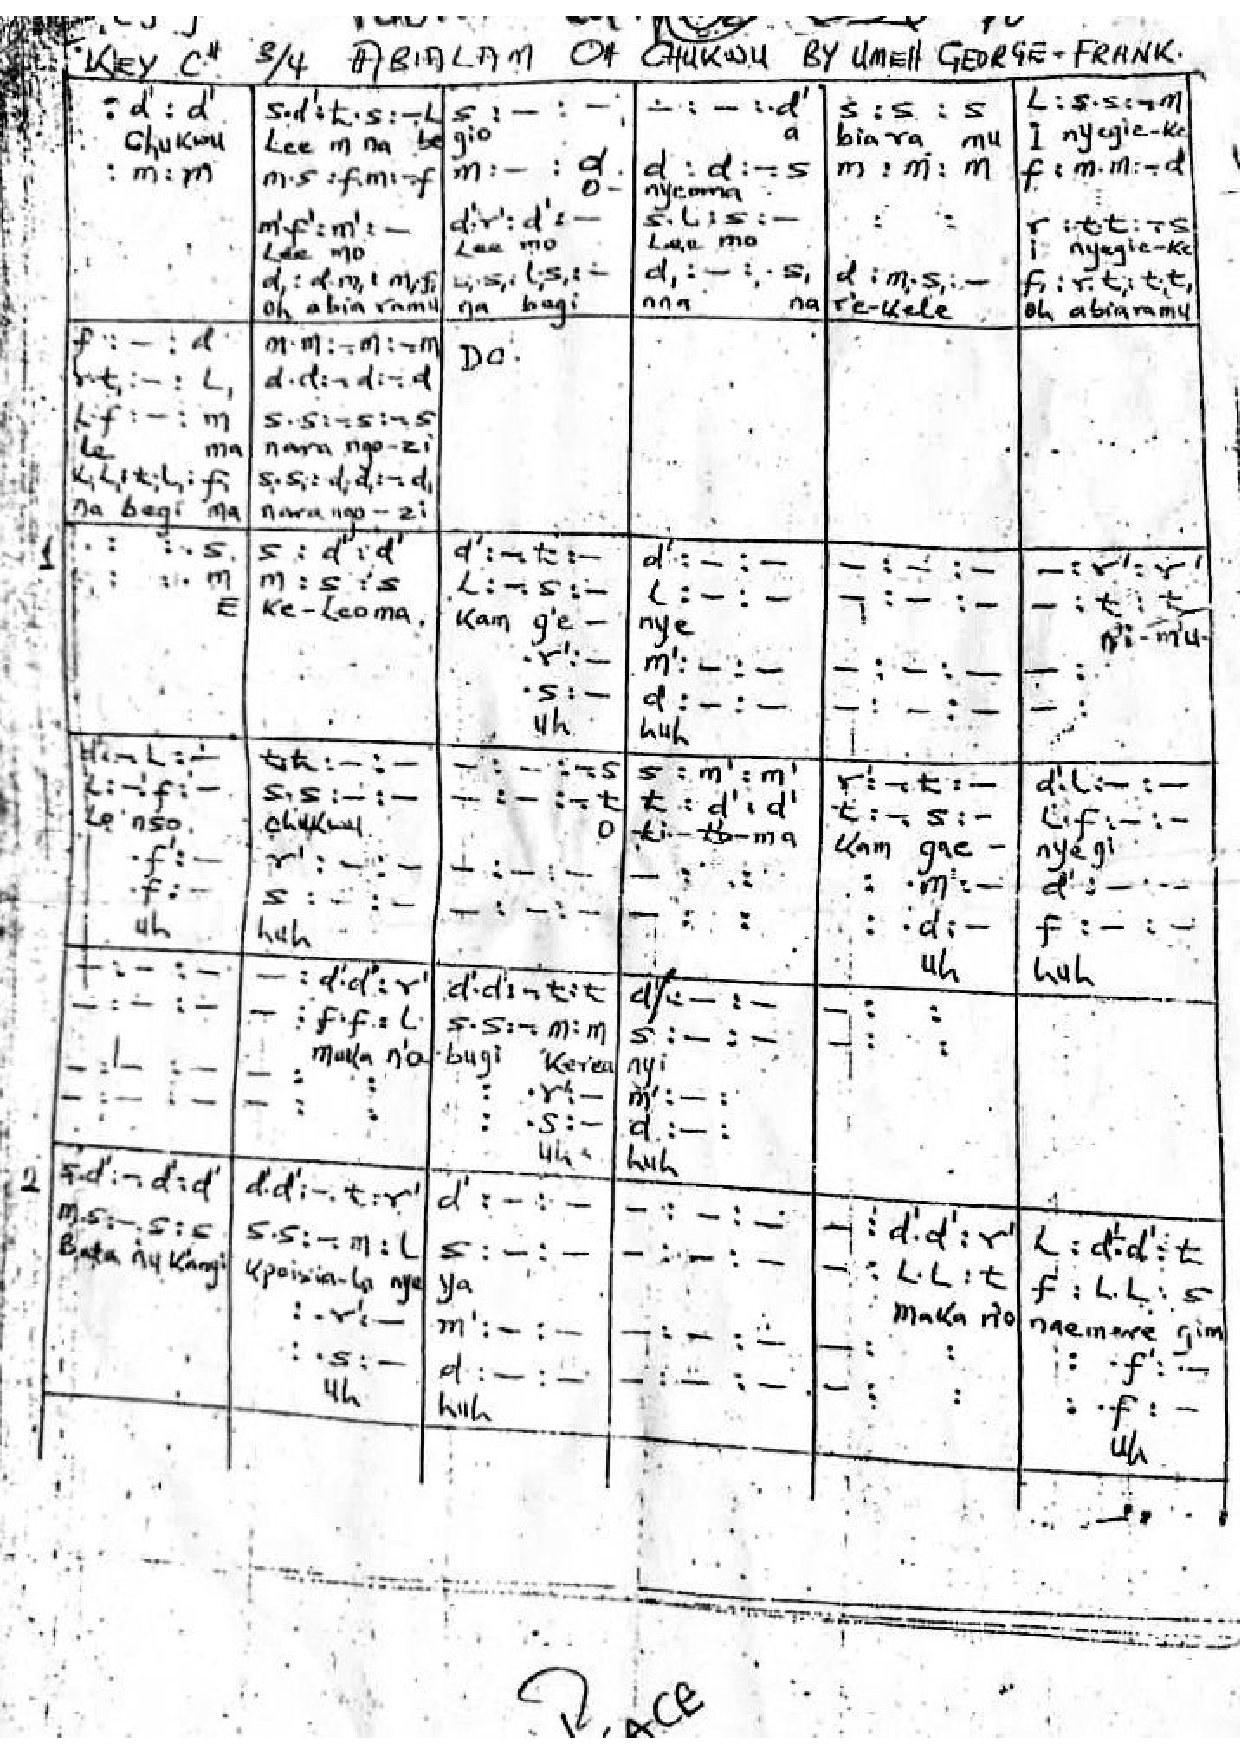 KEY C# 3/4 ABIALAM OH CHUKWU BY UMEH GEORGE-FRANK.
: d' : d' | s.d':t.s:-.L | s : - : - | - : - :.d' | s : s : s | L : s.s :-.m
Chukwu | Lee m na be | gio | a | bia ra mu | I nyegie-ke
: m : m | m.s : f.m :-.f | m : - : d. | d : d :-. s | m : m : m | f : m.m :-. d
O- | nyeoma
m'.f' : m' : - | d'.r' : d' : - | s.L : s : - | : : | r : t.t :-. s
Lee mo | Lee mo | Lee mo | i nyegie-ke
oh abia ramu | na begi | nna na | re-kele | oh abiaramu
f : - : d | m.m :-. m :-. m | DO.
r.t, : - : L, | d.d :-. d :-. d
L.f : - : m | s.s :-. s :-. s
le ma | nara ngo-zi
na begi ma | nara ngo-zi
1 : :. s | s : d' : d' | d' :-. t : - | d' : - : - | - : - : - | - : r' : r'
: :. m | m : s : s | L :-. s : - | L : - : - | - : - : - | - : t : t
E | Ke-Leoma. | Kam g'e - | nye | n'i-m'u-
.r' : - | m' : - : - | - : - : - | - :
.s : - | d : - : - | - : - : - | - :
uh | huh
t.t : - : - | - : - :-. s | s : m' : m' | r' :-. t : - | d'.L : - : -
L :-. f : - | s.s : - : - | - : - :-. t | t : d' : d' | t :-. s : - | L.f : - : -
Le nso | chukwu | O | ti-to-ma | Kam gae - | nyegi
.f' : - | r' : - : - | - : - : - | - : : | : .m' : - | d' : - : -
.f : - | s : - : - | - : - : - | - : : | : .d : - | f : - : -
uh | huh | uh | huh
- : - : - | - : d'.d' : r' | d'.d' :-. t : t | d' : - : - | - : :
- : - : - | - : f.f : L | s.s :-. m : m | s : - : - | - : :
maka n'o | bugi Kerea | nyi
- : - : - | - : : | : .r' : - | m' : - :
- : - : - | - : : | : .s : - | d : - :
uh | huh
2 s.d' :-. d' : d' | d'.d' :-. t : r' | d' : - : - | - : - : - | - : d'.d' : r' | L : d'.d' : t
m.s :-. s : s | s.s :-. m : L | s : - : - | - : - : - | - : L.L : t | f : L.L : s
Bata nu Kangi | nye | ya | maka n'o | naemere gim
: .r' : - | m' : - : - | - : - : - | - : : | : .f' : -
: .s : - | d : - : - | - : - : - | - : : | : .f : -
uh | huh | uh